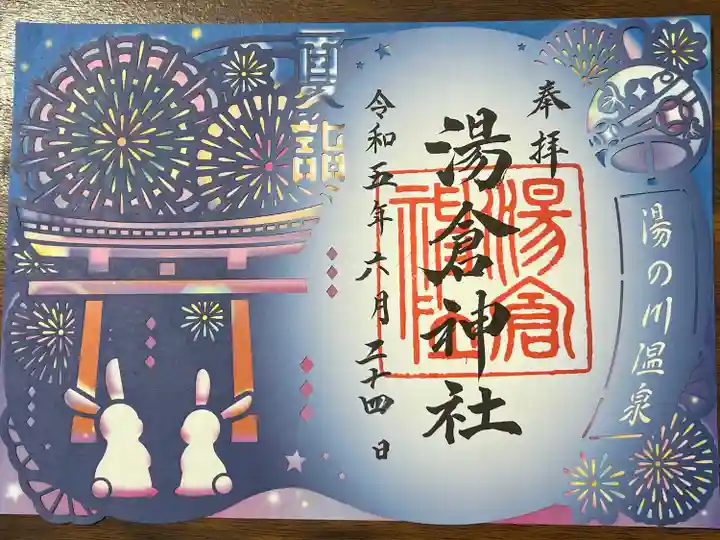 奉拝
湯倉神社
湯倉神社
令和五年六月二十四日
夏詣
湯の川温泉